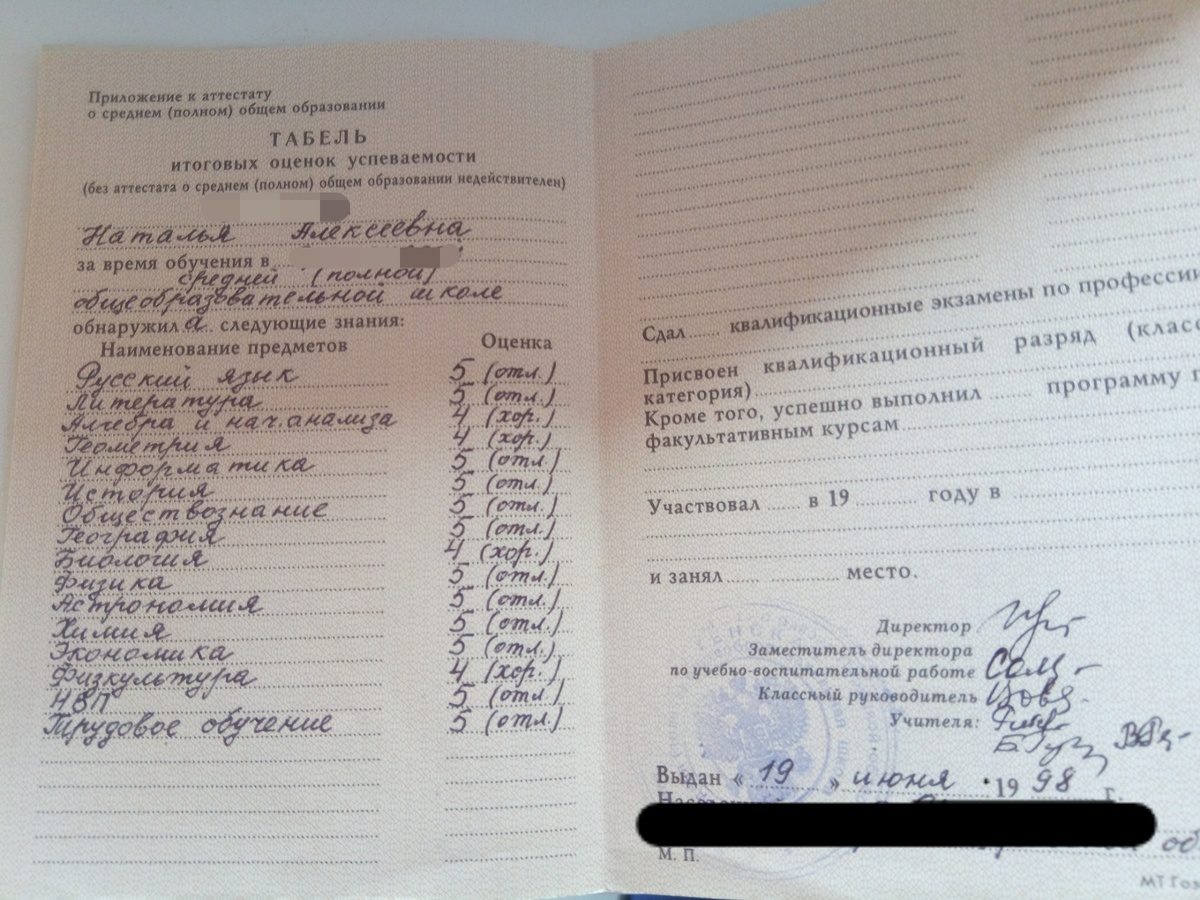 Приложение к аттестату
о среднем (полном) общем образовании
ТАБЕЛЬ
итоговых оценок успеваемости
(без аттестата о среднем (полном) общем образовании недействителен)
Наталья Алексеевна
за время обучения в
средней (полной)
общеобразовательной школе
обнаружил а следующие знания:
Наименование предметов Оценка
Русский язык 5 (отл.)
Литература 5 (отл.)
Алгебра и нач. анализа 4 (хор.)
Геометрия 4 (хор.)
Информатика 5 (отл.)
История 5 (отл.)
Обществознание 5 (отл.)
География 5 (отл.)
Биология 4 (хор.)
Физика 5 (отл.)
Астрономия 5 (отл.)
Химия 5 (отл.)
Экономика 5 (отл.)
Физкультура 4 (хор.)
НВП 5 (отл.)
Трудовое обучение 5 (отл.)
Сдал квалификационные экзамены по профессии
Присвоен квалификационный разряд (класс
категория)
Кроме того, успешно выполнил программу п
факультативным курсам
Участвовал в 19 году в
и занял место.
Директор
Заместитель директора
по учебно-воспитательной работе
Классный руководитель
Учителя:
Выдан « 19 » июня 19 98 г.
М. П.
МТ Гоз